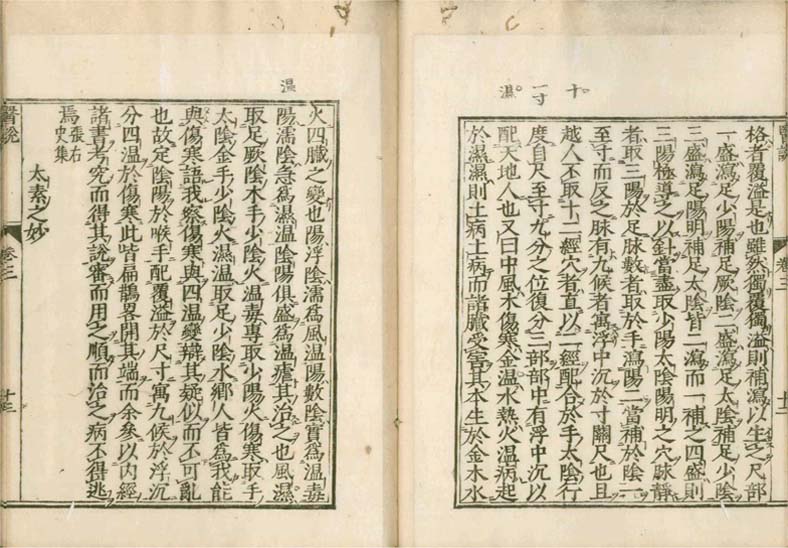 十
一寸
濕
醫說 卷三 十二
格者覆溢是也雖然獨覆獨溢則補瀉以生之尺部
一盛瀉足少陽補足厥陰二盛瀉足太陰補足少陰
三盛瀉足陽明補足太陰皆二瀉而一補之四盛則
三陽極導之以針當盡取少陽太陰陽明之穴脉靜
者取三陽於足脉數者取於手瀉陽二當補於陰一
至寸而反之脉有九候者寓浮中沉於寸關尺也且
越人不取十二經穴者直以二經配合於手太陰行
度自尺至寸九分之位復分三部部中有浮中沉以
配天地人也又曰中風木傷寒金溫水熱火温病起
於濕濕則土病土病而諸臟受害其本生於金木水
温
火四臟之變也陽浮陰濡爲風温陽數陰實爲温毒
陽濡陰急爲濕温陰陽俱盛爲温瘧其治之也風濕
取足厥陰木手少陰火温毒專取少陽火傷寒取手
太陰金手少陰火濕温取足少陰水鄉人皆爲我能
與傷寒語我察傷寒與四温變辯其疑似而不可亂
也故定陰陽於喉手配覆溢於尺寸寓九候於浮沉
分四温於傷寒此皆扁鵲畧開其端而余參以內經
諸書考究而得其說審而用之順而治之病不得逃
焉張右史集
太素之妙
醫說 卷三 十三